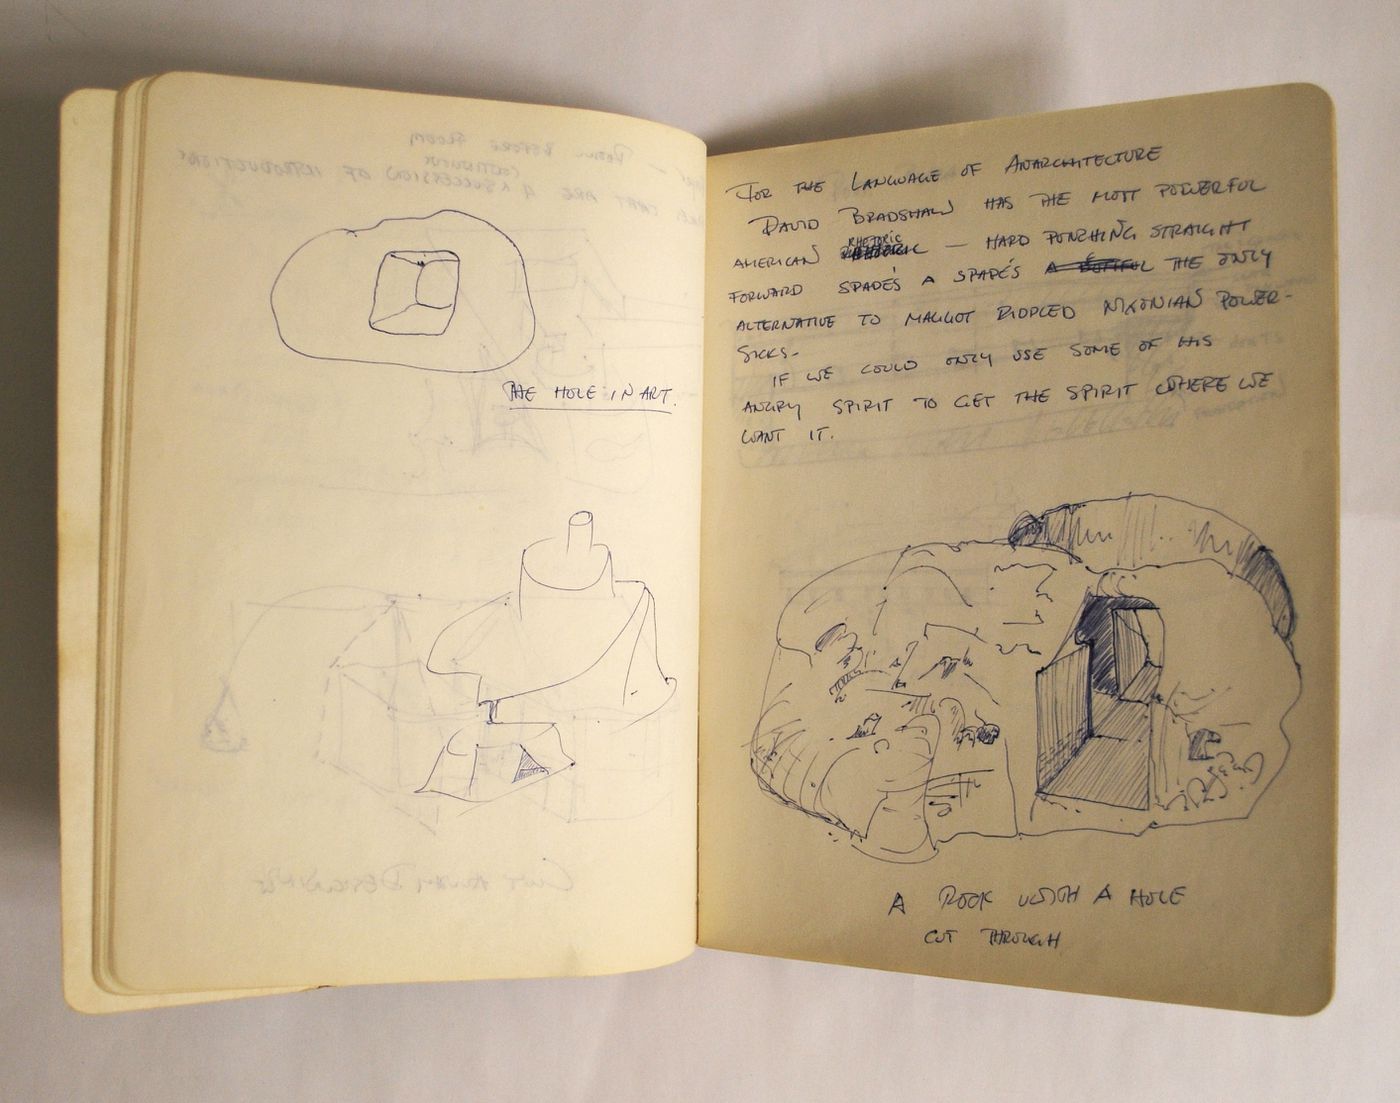 THE HOLE IN ART.
FOR THE LANGUAGE OF ANARCHITECTURE
DAVID BRADSHAW HAS THE MOST POWERFUL
AMERICAN RHETORIC — HARD PUNCHING STRAIGHT
FORWARD SPADE'S A SPADE'S THE ONLY
ALTERNATIVE TO MAGGOT RIDDLED NIXONIAN POWER-
SICKS-
IF WE COULD ONLY USE SOME OF HIS
ANGRY SPIRIT TO GET THE SPIRIT WHERE WE
WANT IT.
A ROCK WITH A HOLE
CUT THROUGH